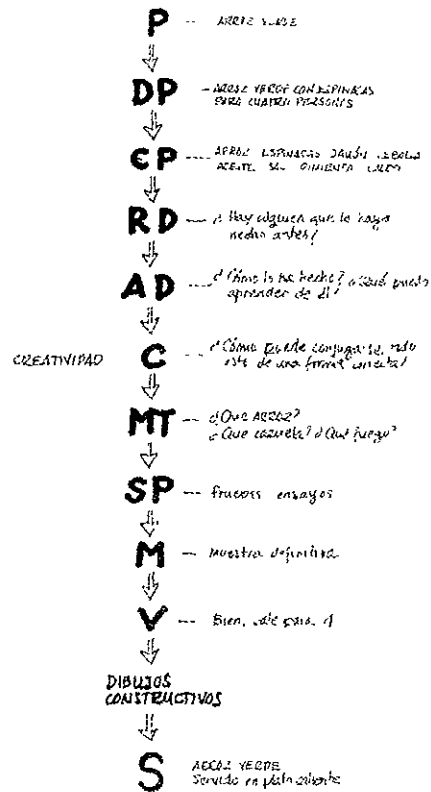 P -- ARROZ VERDE
DP - ARROZ VERDE CON ESPINACAS
PARA CUATRO PERSONAS
EP - ARROZ ESPINACAS JAMÓN CEBOLLA
ACEITE SAL PIMIENTA CALDO
RD -- ¿Hay alguien que lo haya
hecho antes?
AD -- ¿Cómo lo ha hecho? ¿Qué puedo
aprender de él?
CREATIVIDAD C -- ¿Cómo puede conjugarse todo
esto de una forma correcta?
MT -- ¿Qué ARROZ?
¿Qué cazuela? ¿Qué fuego?
SP -- Pruebas ensayos
M -- Muestra definitiva
V -- Bien, vale para 4
DIBUJOS
CONSTRUCTIVOS
S ARROZ VERDE
Servido en plato caliente